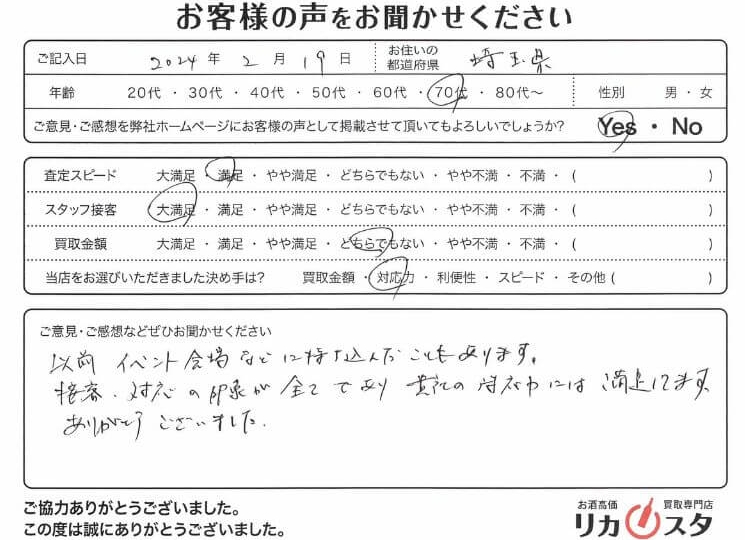 お客様の声をお聞かせください
ご記入日 2024 年 2 月 19 日 お住いの都道府県 埼玉県
年齢 20代・30代・40代・50代・60代・70代・80代～ 性別 男・女
ご意見・ご感想を弊社ホームページにお客様の声として掲載させて頂いてもよろしいでしょうか? Yes・No
査定スピード 大満足・満足・やや満足・どちらでもない・やや不満・不満・( )
スタッフ接客 大満足・満足・やや満足・どちらでもない・やや不満・不満・( )
買取金額 大満足・満足・やや満足・どちらでもない・やや不満・不満・( )
当店をお選びいただきました決め手は? 買取金額・対応力・利便性・スピード・その他( )
ご意見・ご感想などぜひお聞かせください
以前 イベント会場などに持ち込んだこともあります。
接客、対応の印象が全てであり 貴社の対応力には満足してます
ありがとうございました。
ご協力ありがとうございました。
この度は誠にありがとうございました。
お酒高価 買取専門店
リカスタ